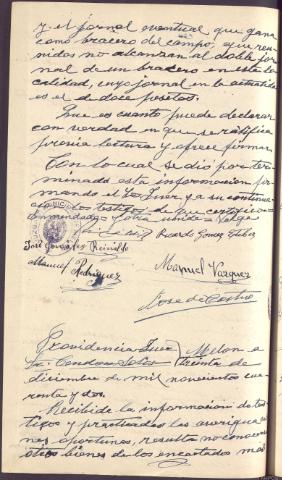 y el jornal eventual que gana
como bracero del campo, que reu-
nidos no alcanzan al doble jor-
nal de un bracero en esta lo-
calidad, cuyo jornal en la actualidad
es el de doce pesetas.
Que es cuanto puede declarar
con verdad en que se ratifica
previa lectura y ofrece firmar.
Con lo cual se dió por ter-
minada esta información fir-
mando el Sr. Juez y a su continua-
ción los testigos de que certifico=
Enmendado= =Valga
Ricardo Gomez
José Gonzalez Reinaldo
Manuel Rodriguez
Manuel Vazquez
Jose de Castro
Providencia Juez Melon a
Sr. treinta de
diciembre de mil novecientos cua-
renta y dos.
Recibida la información de tes-
tigos y practicadas las averiguacio-
nes oportunas, resulta no conocerse
otros bienes de los encartados mas